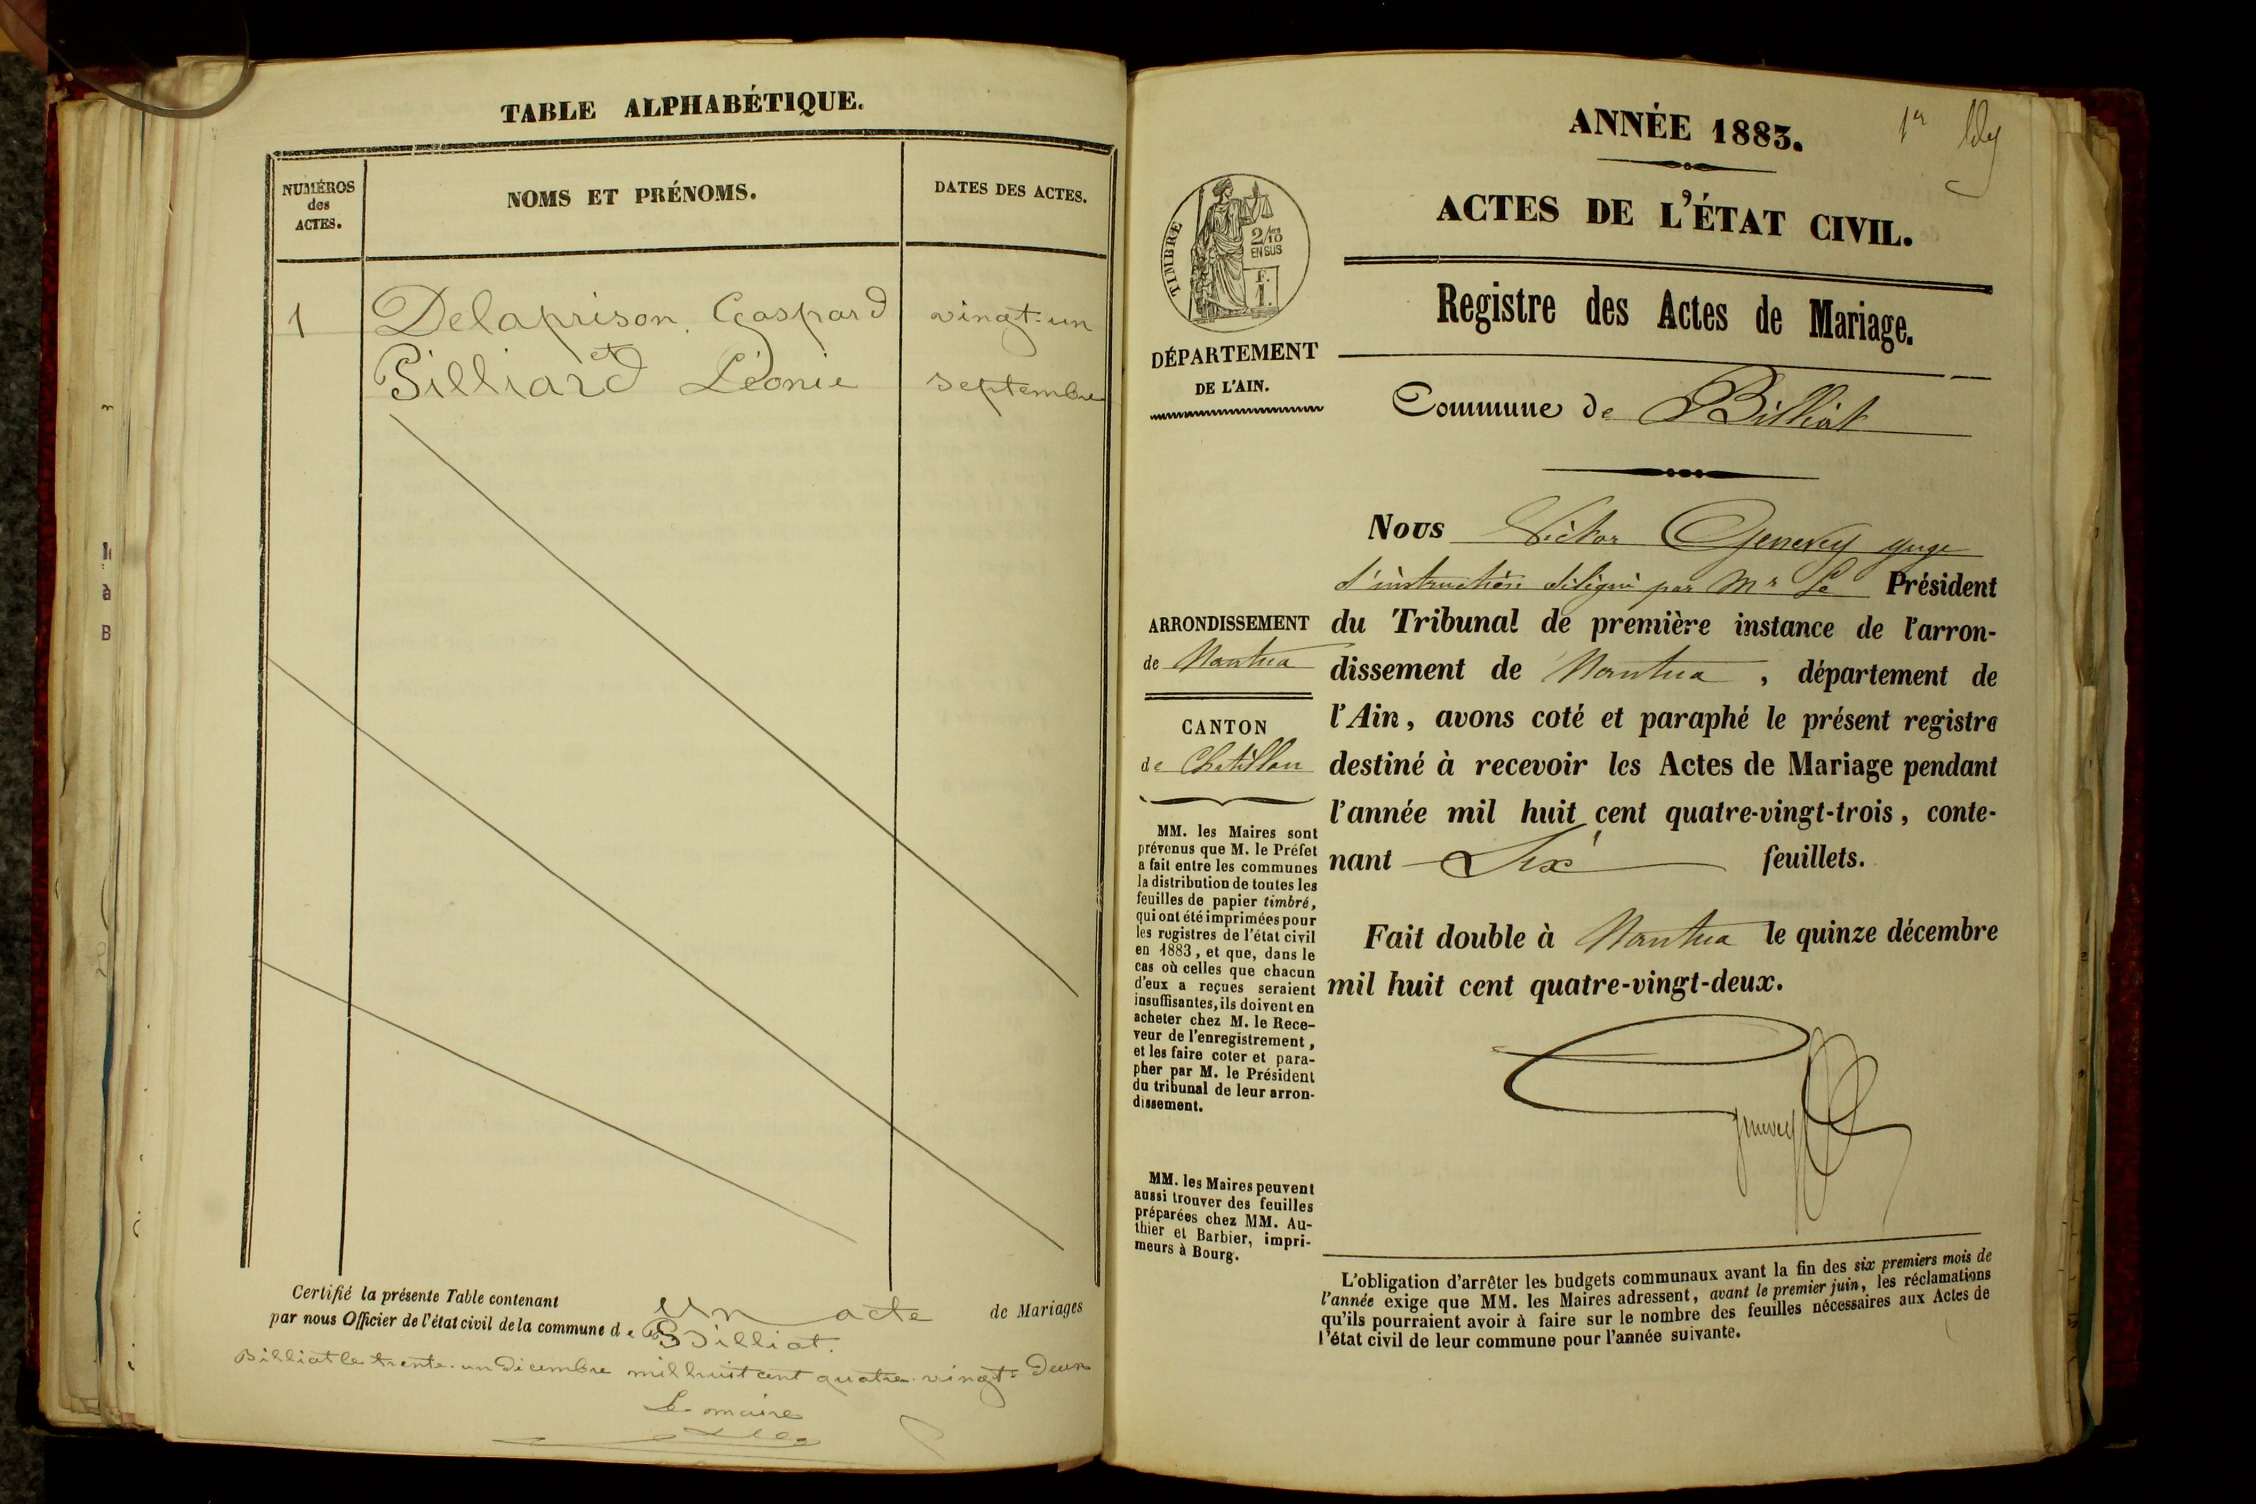 TABLE ALPHABÉTIQUE.
NUMÉROS
des
ACTES.
NOMS ET PRÉNOMS.
DATES DES ACTES.
1
Delaprison Gaspard
vingt-un
et
Billiard Léonie
septembre
Certifié la présente Table contenant Un acte de Mariages
par nous Officier de l'état civil de la commune de Billiat.
Billiat le trente-un Décembre mil huit cent quatre-vingt-Deux
Le maire
ANNÉE 1883.
1er
ACTES DE L'ÉTAT CIVIL.
TIMBRE
2/10
EN SUS
F.
1.
Registre des Actes de Mariage.
DÉPARTEMENT
DE L'AIN.
Commune de Billiat
Nous Victor Genevey juge
d'instruction délégué par Mr Le Président
du Tribunal de première instance de l'arron-
dissement de Nantua, département de
l'Ain, avons coté et paraphé le présent registre
destiné à recevoir les Actes de Mariage pendant
l'année mil huit cent quatre-vingt-trois, conte-
nant Six feuillets.
Fait double à Nantua le quinze décembre
mil huit cent quatre-vingt-deux.
Genevey
ARRONDISSEMENT
de Nantua
CANTON
de Chatillon
MM. les Maires sont
prévenus que M. le Préfet
a fait entre les communes
la distribution de toutes les
feuilles de papier timbré,
qui ont été imprimées pour
les registres de l'état civil
en 1883, et que, dans le
cas où celles que chacun
d'eux a reçues seraient
insuffisantes, ils doivent en
acheter chez M. le Rece-
veur de l'enregistrement,
et les faire coter et para-
pher par M. le Président
du tribunal de leur arron-
dissement.
MM. les Maires peuvent
aussi trouver des feuilles
préparées chez MM. Au-
thier et Barbier, impri-
meurs à Bourg.
L'obligation d'arrêter les budgets communaux avant la fin des six premiers mois de
l'année exige que MM. les Maires adressent, avant le premier juin, les réclamations
qu'ils pourraient avoir à faire sur le nombre des feuilles nécessaires aux Actes de
l'état civil de leur commune pour l'année suivante.